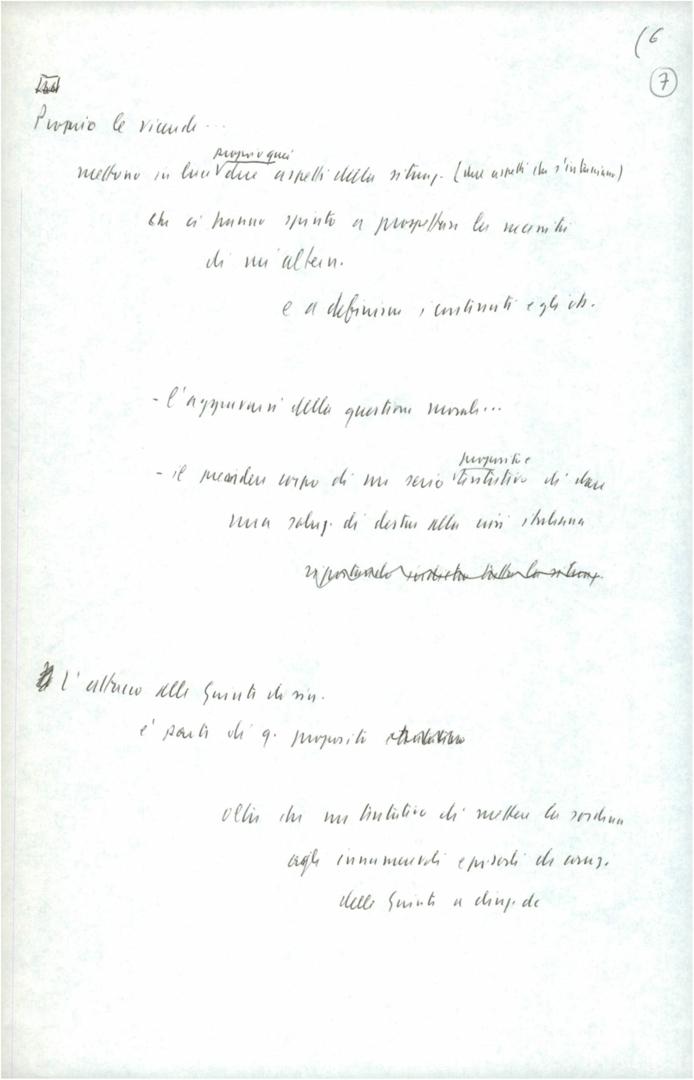 (6
7
Proprio le vicende...
proprio quei
mettono in luce due aspetti della situaz. (due aspetti che s'intrecciano)
che ci hanno spinto a prospettare la necessità
di un'altern.
e a definirne i contenuti e gli ob.
- l'aggravarsi della questione morale...
- il prendere corpo di un serio tentativo di dare
proposito e
una soluz. di destra alla crisi italiana
L'attacco alle Giunte di sin.
è parte di q. proposito
oltre che un tentativo di mettere la sordina
agli innumerevoli episodi di corruz.
delle Giunte a direz. dc